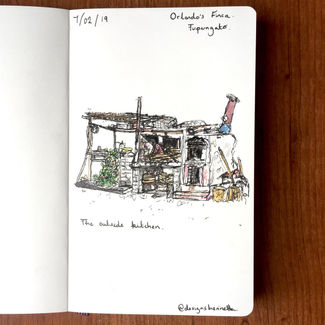 7/02/19
Orlando's Finca.
Tupungato.
The outside kitchen.